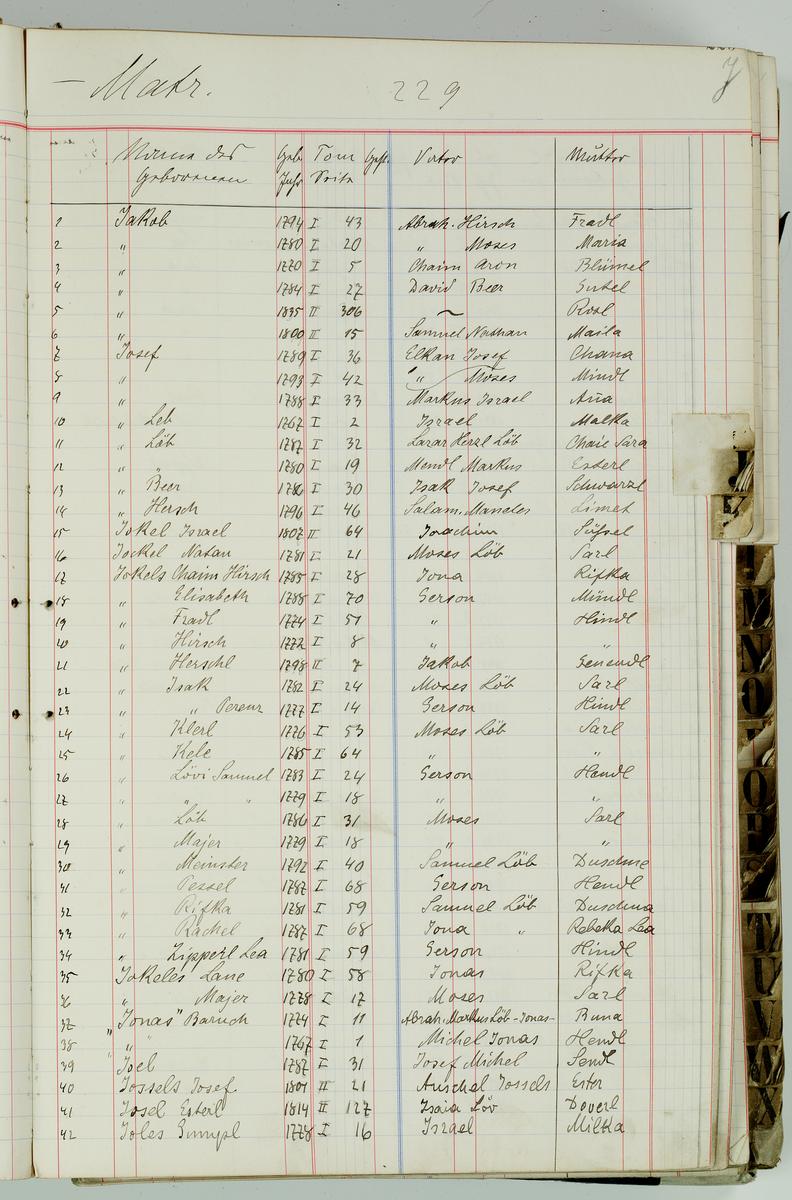 — Matr. 229 J
Name des Geb. Tom Gest. Vater Mutter
Geborenen Jahr Seite
1 Jakob 1794 I 43 Abrah. Hirsch Fradl
2 " 1780 I 20 " Moses Maria
3 " 1770 I 5 Chaim Aron Blümel
4 " 1784 I 27 David Beer Gutel
5 " 1835 II 306 ~ Rosl
6 " 1800 II 15 Samuel Nathan Maila
7 Josef 1789 I 36 Elkan Josef Chana
8 " 1793 I 42 " Moses Mindl
9 " 1788 I 33 Markus Israel Aña
10 " Leb 1767 I 2 Israel Malka
11 " Löb 1787 I 32 Lazar Herzl Löb Chaie Sara
12 " " 1780 I 19 Mendl Markus Esterl
13 " Beer 1786 I 30 Isak Josef Schwarzl
14 " Hersch 1796 I 46 Salam. Maneles Limet
15 Jokel Israel 1807 II 64 Joachim Süssel
16 Jockel Natan 1781 I 21 Moses Löb Sarl
17 Jokels Chaim Hirsch 1785 I 28 Jona Rifka
18 " Elisabeth 1788 I 70 Gerson Mündl
19 " Fradl 1774 I 51 " Hindl
20 " Hirsch 1772 I 8 " "
21 " Herschl 1798 II 7 Jakob Genendl
22 " Isak 1782 I 24 Moses Löb Sarl
23 " " Perenz 1777 I 14 Gerson Hindl
24 " Klerl 1776 I 53 Moses Löb Sarl
25 " Kele 1785 I 64 " "
26 " Lövi Samuel 1783 I 24 Gerson Hendl
27 " " " 1779 I 18 " "
28 " Löb 1786 I 31 Moses Sarl
29 " Majer 1779 I 18 " "
30 " Meinster 1792 I 40 Samuel Löb Duschme
31 " Pessel 1787 I 68 Gerson Hendl
32 " Rifka 1781 I 59 Samuel Löb Duschna
33 " Rachel 1787 I 68 Jona " Rebeka Lea
34 " Zipperl Lea 1781 I 59 Gerson Hindl
35 Jokeles Lane 1780 I 58 Jonas Rifka
36 " Majer 1778 I 17 Moses Sarl
37 "Jonas" Baruch 1774 I 11 Abrah. Markus Löb -Jonas- Buna
38 " " 1767 I 1 Michel Jonas Hendl
39 Joel 1787 I 31 Josef Michel Sendl
40 Jossels Josef 1801 II 21 Anschel Jossels Ester
41 Josel Esterl 1814 II 127 Isaia Löv Doverl
42 Joles Gumpl 1778 I 16 Israel Milka
M
N
O
T
U
V
W
X